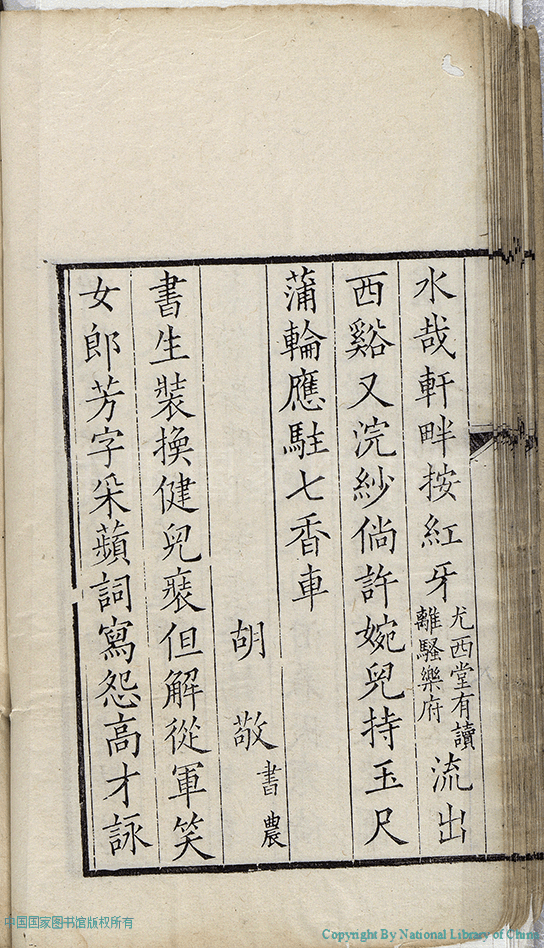 水哉軒畔按紅牙尤西堂有讀離騷樂府流出
西谿又浣紗倘許婉兒持玉尺
蒲輪應駐七香車
胡敬書農
書生裝換健兒裝但解從軍笑
女郎芳字采蘋詞寫怨高才詠
中国国家图书馆版权所有
Copyright By National Library of China